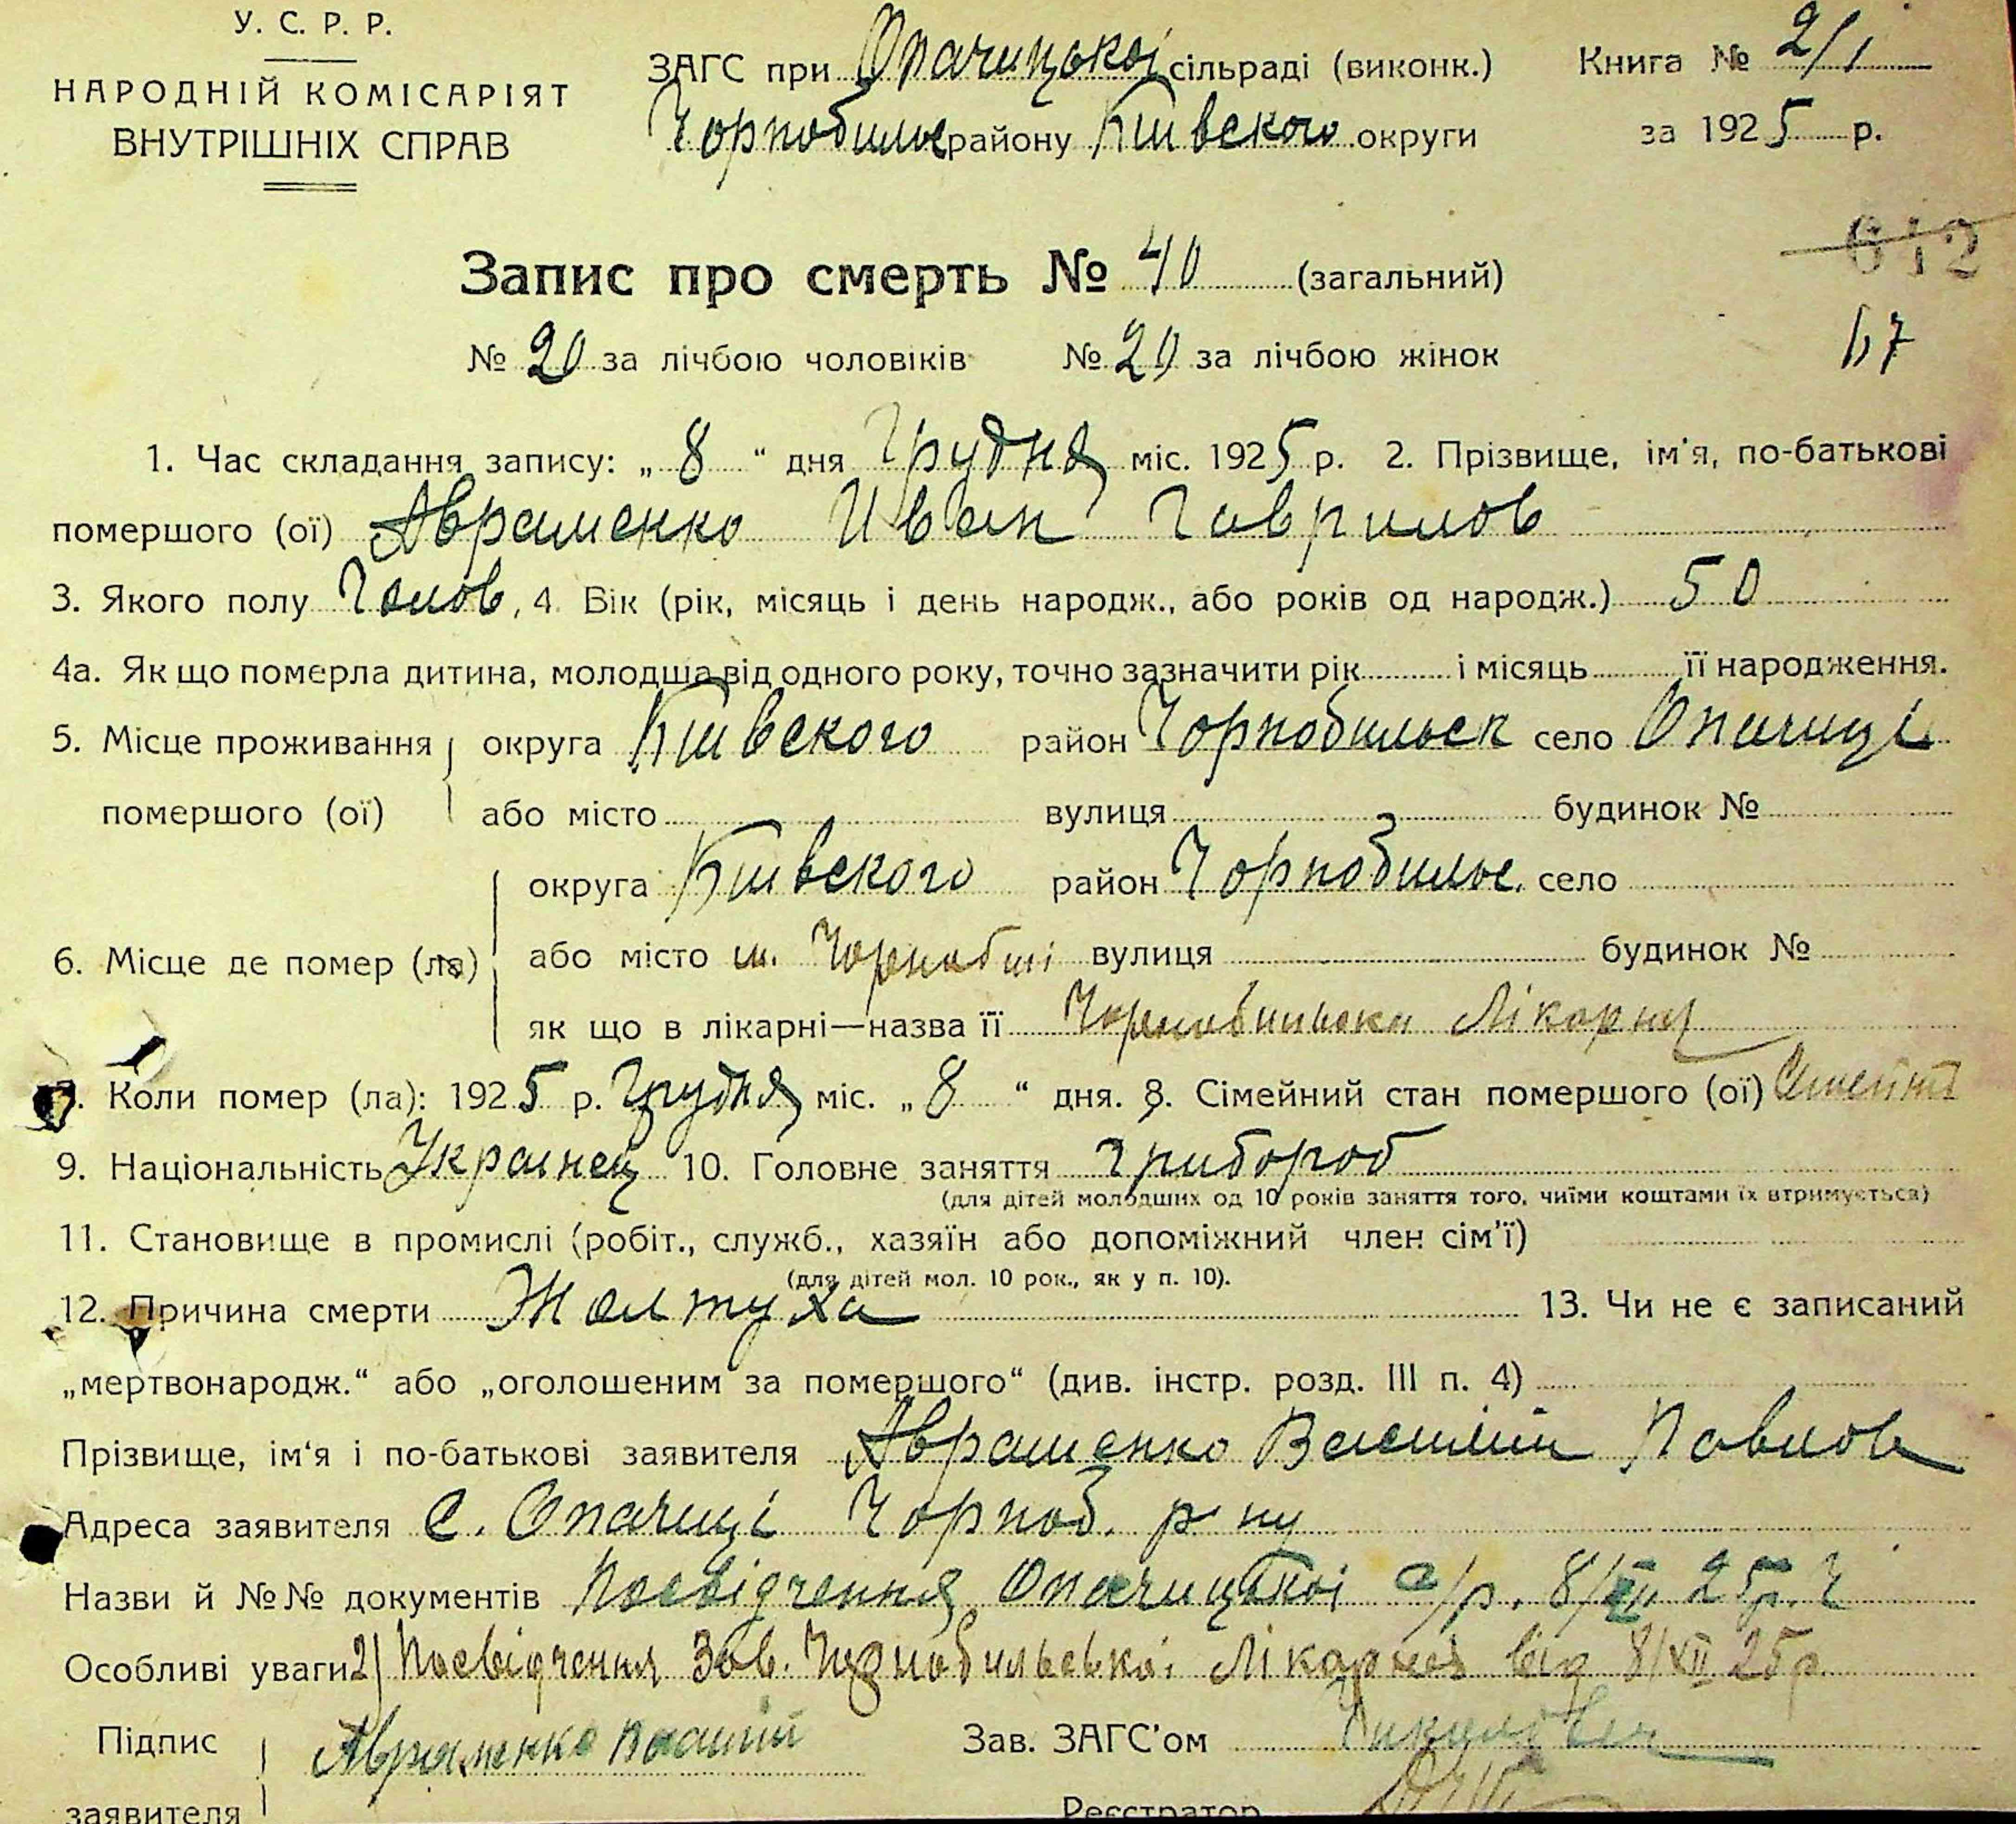 У. С. Р. Р.
НАРОДНІЙ КОМІСАРІЯТ
ВНУТРІШНІХ СПРАВ
ЗАГС при Опачицької сільраді (виконк.)
Чорнобильс району Київского округи
Книга № 2/1
за 1925 р.
612
Запис про смерть № 40 (загальний)
№ 20 за лічбою чоловіків № 20 за лічбою жінок
1. Час складання запису: „8“ дня Грудня міс. 1925 р. 2. Прізвище, ім'я, по-батькові
помершого (ої) Авраменко Иван Гаврилов
3. Якого полу Чолов, 4. Вік (рік, місяць і день народж., або років од народж.) 50
4а. Як що померла дитина, молодша від одного року, точно зазначити рік і місяць її народження.
5. Місце проживання округа Київского район Чорнобильск село Опачиці
помершого (ої) або місто вулиця будинок №
округа Київского район Чорнобильс. село
6. Місце де помер (ла) або місто м. Чорнобилі вулиця будинок №
як що в лікарні—назва її Чорнобильска Лікарня
7. Коли помер (ла): 1925 р. Грудня міс. „8“ дня. 8. Сімейний стан помершого (ої)
9. Національність Украінец 10. Головне заняття Хлібороб
(для дітей молодших од 10 років заняття того, чиїми коштами їх втримується)
11. Становище в промислі (робіт., служб., хазяїн або допоміжний член сім'ї)
(для дітей мол. 10 рок., як у п. 10).
12. Причина смерти Жолтуха 13. Чи не є записаний
„мертвонародж.“ або „оголошеним за помершого“ (див. інстр. розд. III п. 4)
Прізвище, ім'я і по-батькові заявителя Авраменко Василий Павлов
Адреса заявителя с. Опачиці Чорноб. р-ну
Назви й №№ документів Посвідчення Опачицької с/р. 8/XII 25р.
Особливі уваги 2) Посвідчення Зав. Чорнобильської Лікарнею від 8/XII 25р
Підпис Авраменко Василій Зав. ЗАГС'ом
заявителя Реєстратор